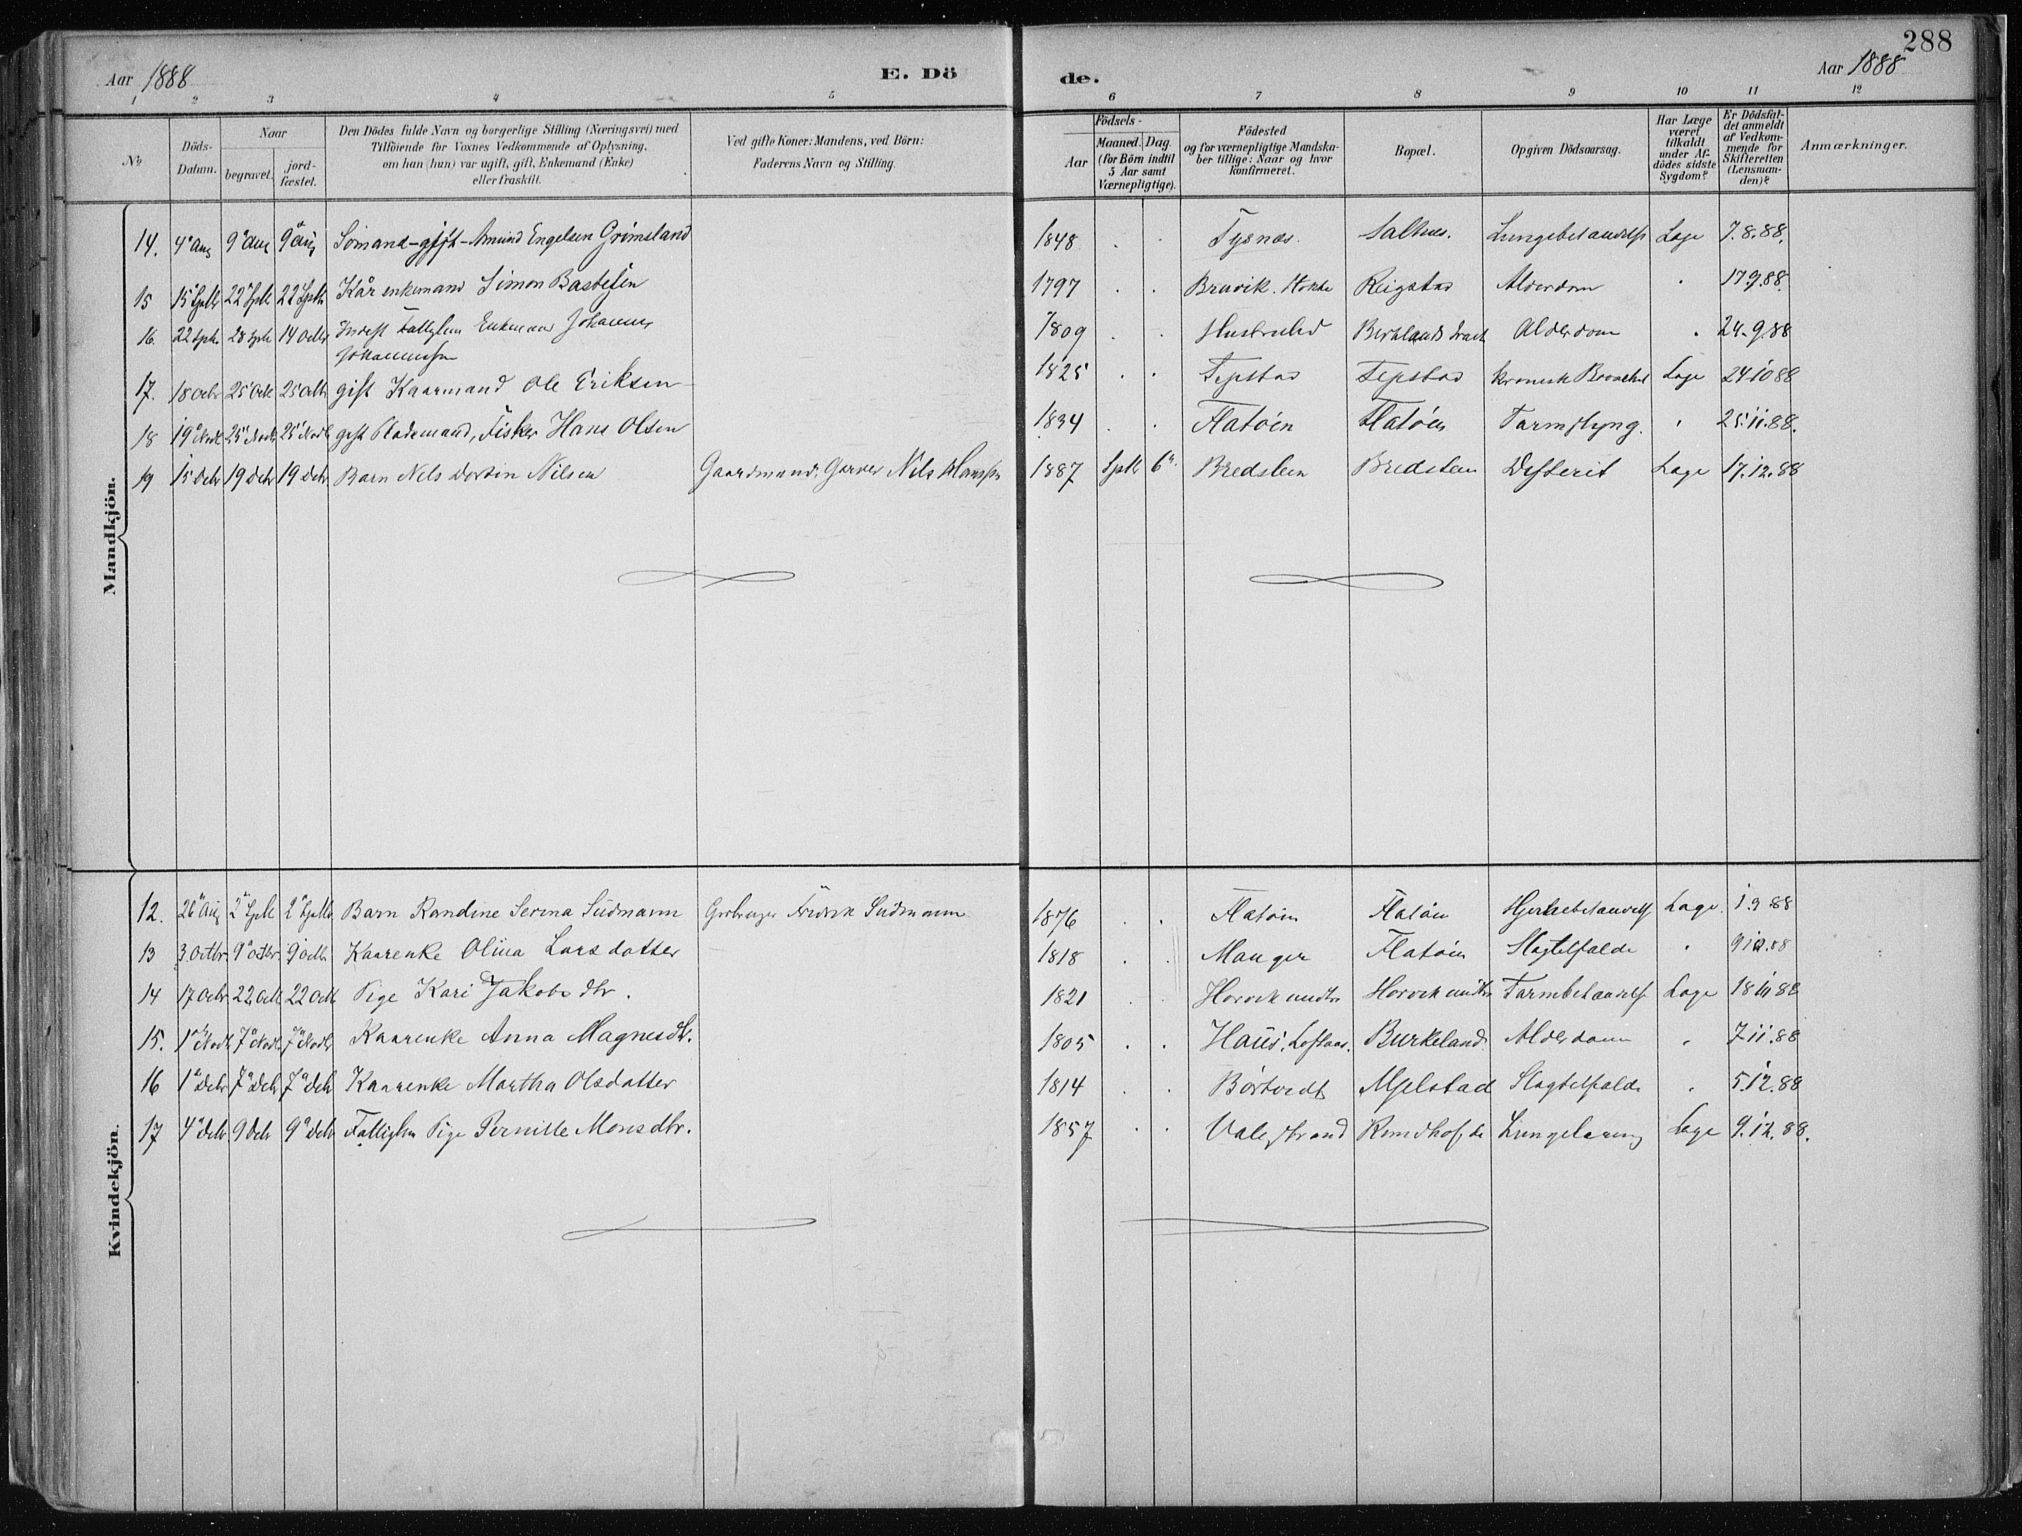 288
Aar 1888 E. Dö de. Aar 1888
1 2 3 4 5 6 7 8 9 10 11 12
No
Döds-Datum.
Naar
begravet.
jord-fæstet.
Den Dödes fulde Navn og borgerlige Stilling (Næringsvei) med
Tilföiende for Voxnes Vedkommende af Oplysning,
om han (hun) var ugift, gift, Enkemand (Enke)
eller fraskilt.
Ved gifte Koner: Mandens, ved Börn:
Faderens Navn og Stilling.
Födsels-
Aar
Maaned. Dag.
(for Börn indtil
5 Aar samt
Værnepligtige).
Födested
og for værnepligtige Mandska-
ber tillige: Naar og hvor
konfirmeret.
Bopæl.
Opgiven Dödsaarsag.
Har Læge
været
tilkaldt
under Af-
dödes sidste
Sygdom?
Er Dödsfal-
det anmeldt
af Vedkom-
mende for
Skifteretten
(Lensman-
den)?
Anmærkninger.
Mandkjön.
14. 4 Aug 9 Aug 9 Aug Sömand - gift - Amund Engelsen Grimsland 1848 . . Tysnæs. Salhus. Lungebetændelse Læge 7.8.88.
15 15 Sptb 22 Sptb 22 Sptb Kår enkemand Simon Bastesen 1797 . . Bruvik. Reigstad Alderdom . 17.9.88.
16. 22 Sptb 28 Sptb 14 Octbr Fattiglem Enkemand Johannes
Johannessen 1809 . . Alderdom . 24.9.88
17. 18 Octr 25 Octb 25 Octb gift Kaarmand Ole Eriksen 1825 . . Tepstad Tepstad kronisk Læge 24 10 88
18 19 Novb 25 Novb 25 Novb gift Pladsmand, Fisker Hans Olsen 1834 . . Flatöen Flatöen Tarmslyng. . 25.11.88.
19 15 Decbr 19 Decbr 19 Decbr Barn Nels Dortin Nilsen Gaardmand, Garver Nils Hanssen 1887 Sptb 6 Bredsten Bredsten Difterit Læge 17.12.88
Kvindekjön.
12. 26 Aug 2 Sptb 2 Sptb Barn Randine Serina Sudmann Fredrik Sudmann 1876 . . Flatöen Flatöen Hjernebetændelse Læge. 1 9 88
13 3 Octbr 9 Octbr 9 Octb Kaarenke Olina Larsdatter 1818 . . Manger Flatöen Slagtilfælde . 9 10.88
14 17 Octbr 22 Octb 22 Octb Pige Kari Jakobsdtr. 1821 . . Tarmbetændelse Læge 18 10 88
15. 1 Novb 7 Novb 7 Novb Kaarenke Anna Magnesdtr. 1805 . . Haus. Loftaas. Burkeland Alderdom . 7 11.88
16 1 Decbr 7 Decbr 7 Decb Kaarenke Martha Olsdatter 1814 . . Börtvedt Mjelstad Slagtilfælde . 5.12.88
17 4 Decbr 9 Decbr 9 Decbr Fattiglem Pige Pernille Monsdtr. 1857 . . Valestrand Læge 9.12.88.